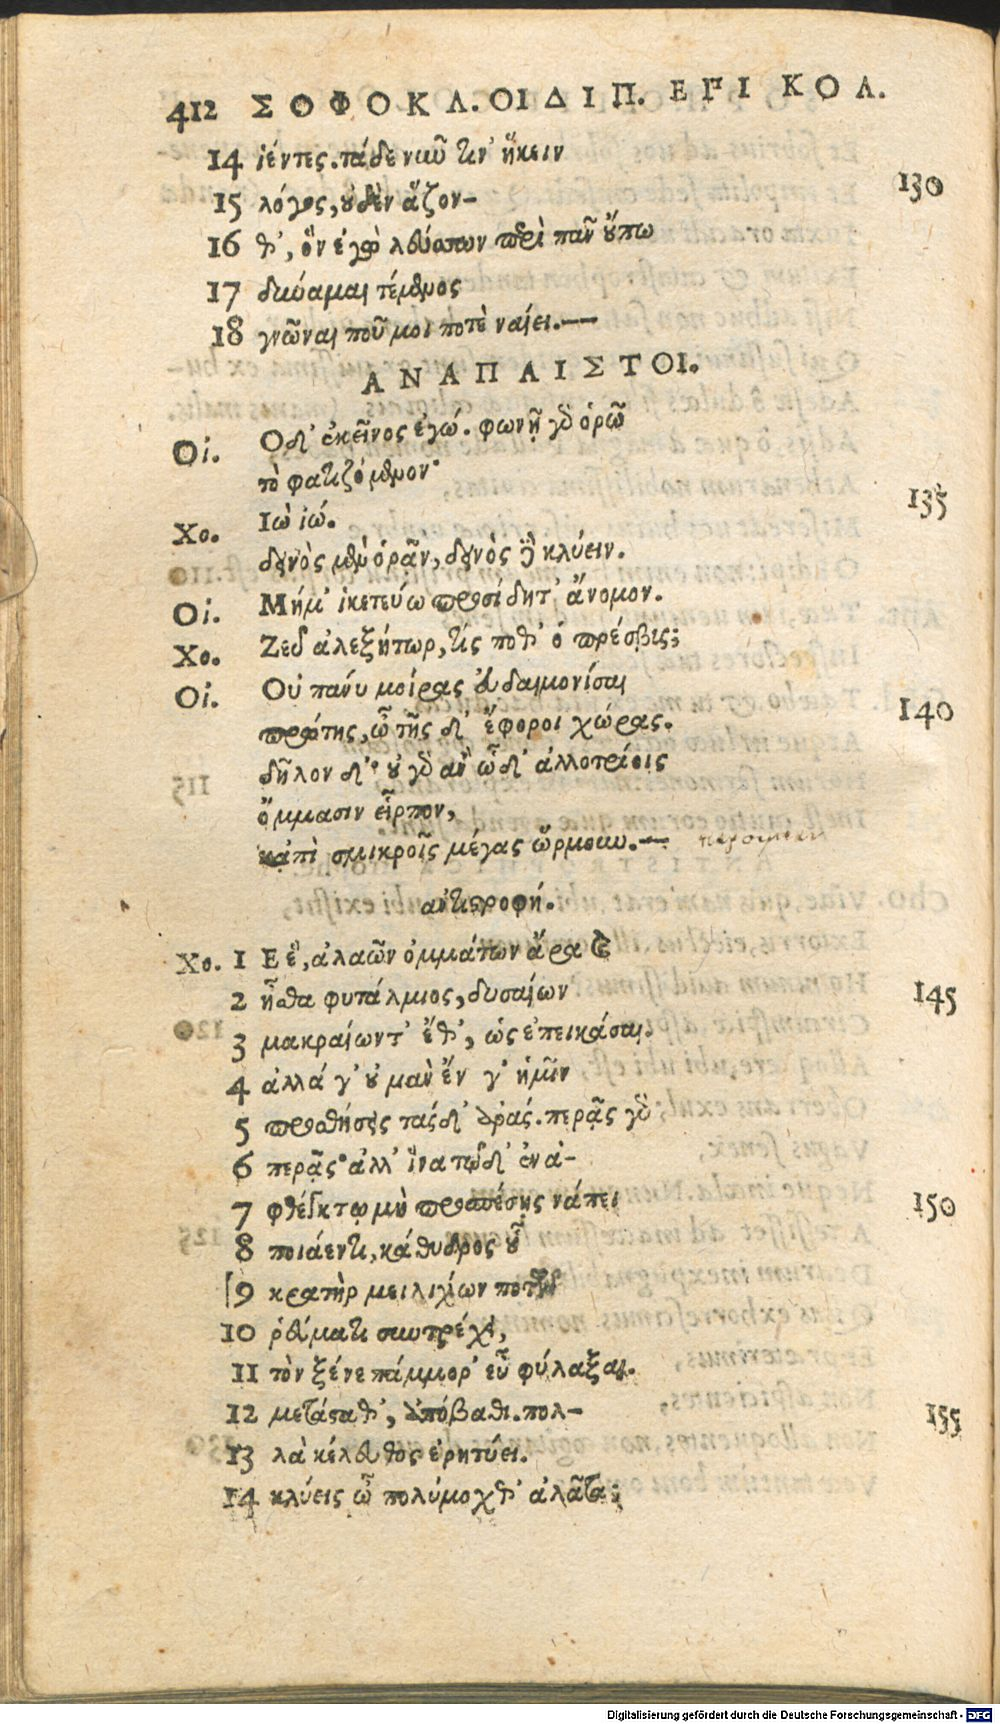 412 ΣΟΦΟΚΛ. ΟΙΔΙΠ. ΕΠΙ ΚΟΛ.
14 ἱέντες. τὰ δὲ νῦν τιν' ἥκειν
130
15 λόγος, οὐδὲν ἅζον-
16 θ', ὃν ἐγὼ λεύσσων περὶ πᾶν οὔπω
17 δύναμαι τέμενος
18 γνῶναι ποῦ μοι ποτὲ ναίει.—
ΑΝΑΠΑΙΣΤΟΙ.
Οἰ. Οδ' ἐκεῖνος ἐγώ. φωνῇ γὸ ὁρῶ
τὸ φατιζόμενον·
135
Χο. Ιὼ ἰώ.
δεινὸς μὲν ὁρᾶν, δεινὸς δὲ κλύειν.
Οἰ. Μήμ' ἱκετεύω προσίδητ' ἄνομον.
Χο. Ζεῦ ἀλεξῆτωρ, τίς ποθ' ὁ πρέσβις;
Οἰ. Οὐ πάνυ μοίρας εὐδαιμονίσαι
140
πρώτης, ὦ τῆς δ' ἔφοροι χώρας.
δῆλον δ'· οὐ γὸ ἂν ὧδ' ἀλλοτρίοις
ὄμμασιν εἷρπον,
κἀπὶ σμικροῖς μέγας ὥρμουν.—
ἀντιστροφή.
Χο. 1 Εἒ, ἀλαῶν ὀμμάτων ἄρα καὶ
2 ἦσθα φυτάλμιος, δυσαίων
145
3 μακραίων τ' ἔθ', ὡς ἐπεικάσαι.
4 ἀλλά γ' οὐ μὰν ἔν γ' ἡμῖν
5 προσθήσεις τάςδ' ἀράς. περᾷς γὸ,
6 περᾷς· ἀλλ' ἵνα τῷδ' ἐνα-
7 φθέγκτῳ μὴ προπέσῃς νάπει
150
8 ποιάεντι, κάθυδρος οὗ
[9 κρατὴρ μειλιχίων ποτῶν
10 ῥεύματι συντρέχει,
11 τὸν ξένε πάμμορ' εὖ φύλαξαι.
12 μετάσταθ', ἀπόβαθι. πολ-
155
13 λὰ κέλευθος ἐρητύει.
14 κλύεις ὦ πολύμοχθ' ἀλᾶτα;
Digitalisierung gefördert durch die Deutsche Forschungsgemeinschaft - DFG